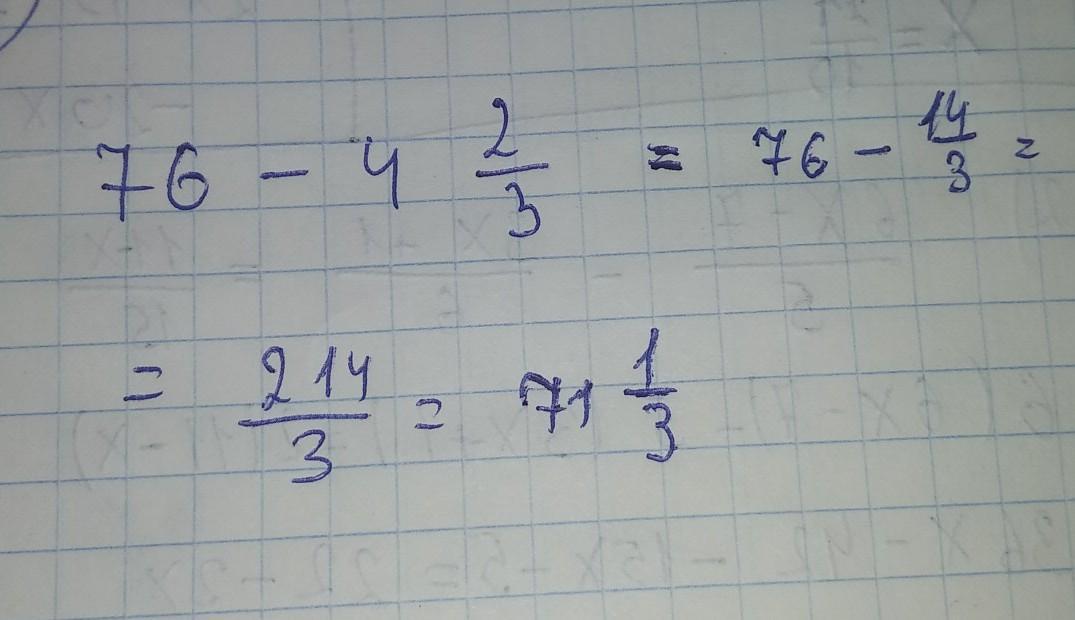 76 - 4 2/3 = 76 - 14/3 =
= 214/3 = 71 1/3